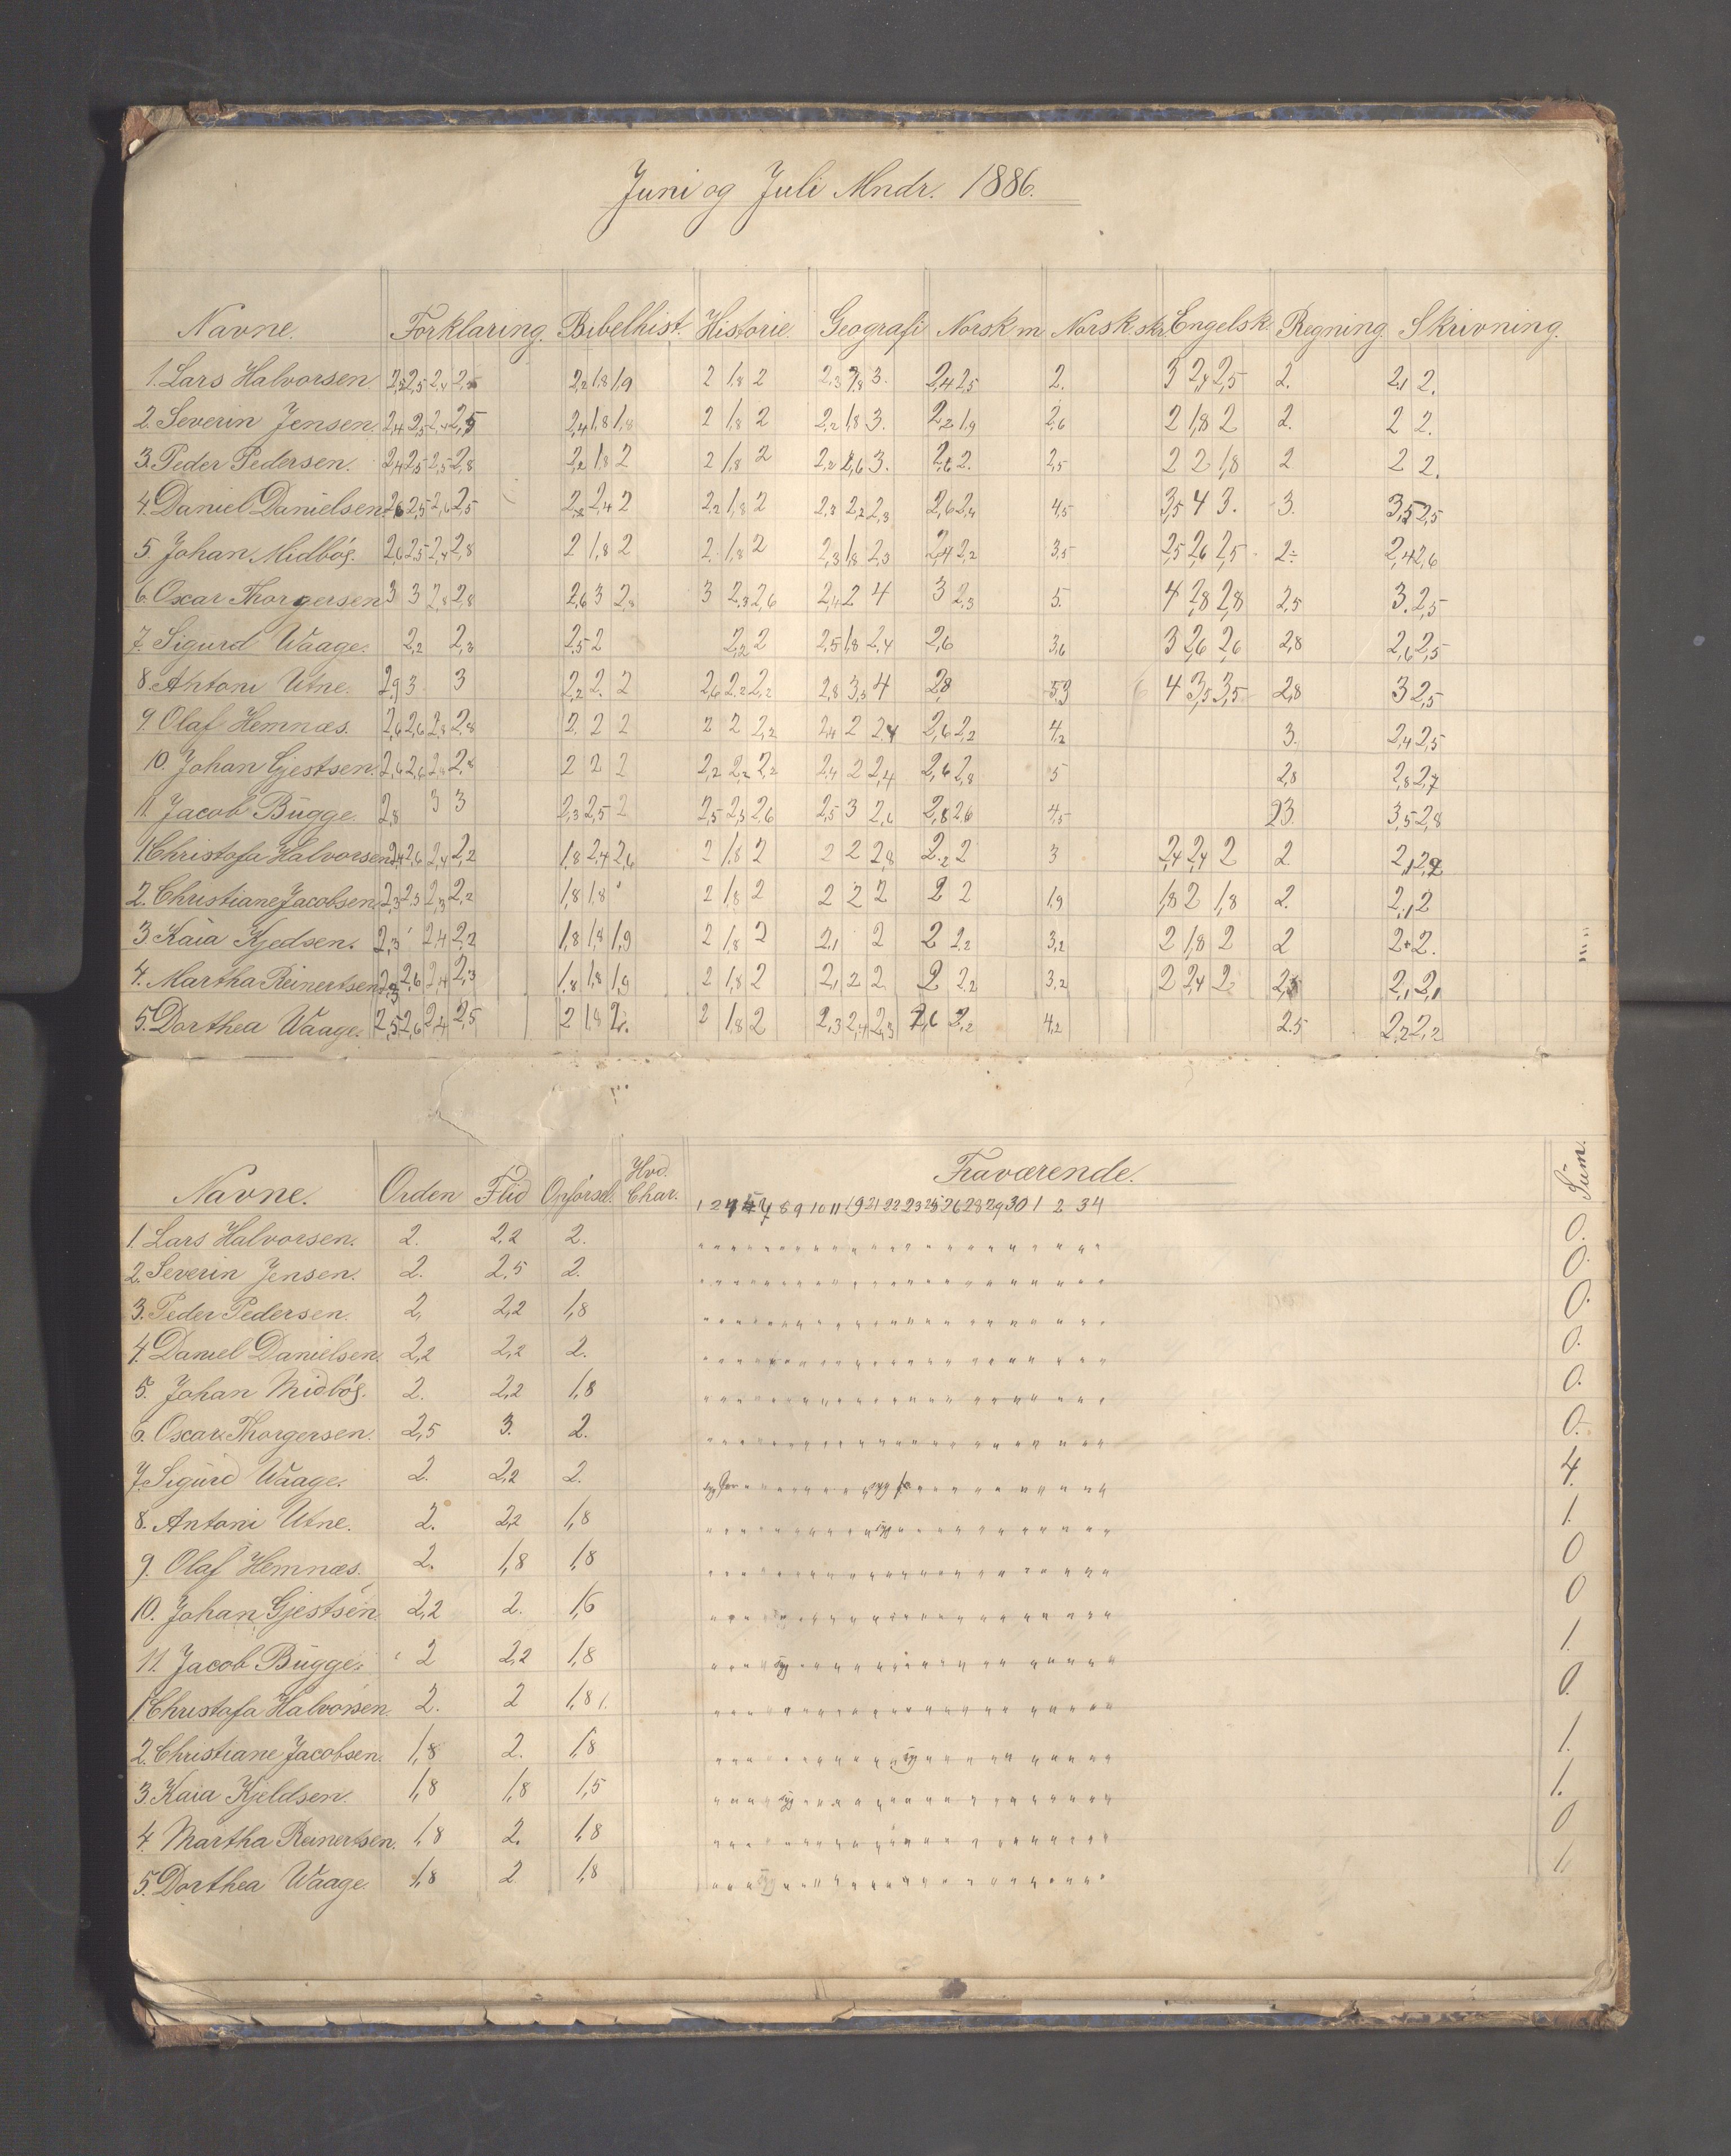 Juni og Juli Mndr. 1886.
Navne. Forklaring. Bibelhist. Historie. Geografi Norsk m Norsk skr. Engelsk Regning. Skrivning.
1. Lars Halvorsen 2,5 2,5 2,4 2,5 2,2 1,8 1,9 2 1,8 2 2,3 3. 2,4 2,5 2. 3 2,4 2,5 2. 2,1 2.
2. Severin Jensen. 2,4 2,5 2,4 2,5 2,4 1,8 1,8 2 1,8 2 2,2 1,8 3. 2,2 1,9 2,6 2 1,8 2 2. 2 2.
3. Peder Pedersen. 2,4 2,5 2,5 2,8 2,2 1,8 2 2 1,8 2 2,2 1,6 3. 2,6 2. 2,5 2 2 1,8 2 2 2.
4. Daniel Danielsen. 2,6 2,5 2,6 2,5 2,2 2,4 2 2,2 1,8 2 2,3 2,2 2,3 2,6 2,4 4,5 3,5 4 3. 3. 3,5 2,5
5. Johan Midbøs. 2,6 2,5 2,4 2,8 2 1,8 2 2 1,8 2 2,3 1,8 2,3 2,4 2,2 3,5 2,5 2,6 2,5 2. 2,4 2,6
6. Oscar Thorgersen 3 3 2,8 2,8 2,6 3 2,8 3 2,3 2,6 2,4 2 4 3 2,3 5. 4 2,8 2,8 2,5 3. 2,5
7. Sigurd Waage. 2,2 2,3 2,5 2 2,2 2 2,5 1,8 2,4 2,6 3,6 3 2,6 2,6 2,8 2,6 2,5
8. Antoni Utne. 2,9 3 3 2,2 2. 2 2,6 2,2 2,2 2,8 3,5 4 2,8 5,3 4 3,5 3,5 2,8 3 2,5
9. Olaf Hemnæs. 2,6 2,6 2,8 2,8 2. 2 2 2 2 2,2 2,4 2 2,4 2,6 2,2 4,2 3. 2,4 2,5
10. Johan Gjestsen. 2,6 2,6 2,4 2,8 2 2 2 2,2 2,2 2,2 2,4 2 2,4 2,6 2,8 5 2,8 2,8 2,7
11. Jacob Bugge. 2,8 3 3 2,3 2,5 2 2,5 2,3 2,6 2,5 3 2,6 2,8 2,6 4,5 2,3. 3,5 2,8
1. Christofa Halvorsen 2,4 2,6 2,4 2,2 1,8 2,4 2,6 2 1,8 2 2 2 2,8 2,2 2 3 2,4 2,4 2 2 2,1 2,2
2. Christiane Jacobsen 2,3 2,3 2,3 2,2 1,8 1,8 2 1,8 2 2 2 2 2 2 1,9 1,8 2 1,8 2. 2,1 2
3. Kaia Kjedsen. 2,3 2,4 2,2 1,8 1,8 1,9 2 1,8 2 2,1 2 2 2,2 3,2 2 1,8 2 2 2 2.
4. Martha Reinertsen 2,3 2,6 2,4 2,3 1,8 1,8 1,9 2 1,8 2 2,1 2 2 2 2,2 3,2 2 2,4 2 2,5 2,1 2,1
5. Dorthea Waage. 2,5 2,6 2,4 2,5 2 1,8 2. 2 1,8 2 2,3 2,4 2,3 2,6 2,2 4,2 2,5 2,2 2,2
Navne. Orden Flid Opførsel. Hvd. Char. Fraværende. Sum.
1 2 7 8 9 10 11 19 21 22 23 25 26 28 29 30 1 2 3 4
1. Lars Halvorsen. 2. 2,2 2. 0.
2. Severin Jensen. 2. 2,5 2. 0.
3. Peder Pedersen. 2, 2,2 1,8 0.
4. Daniel Danielsen. 2,2 2,2 2. 0.
5. Johan Midbøs. 2. 2,2 1,8 0.
6. Oscar Thorgersen. 2,5 3. 2. 0.
7. Sigurd Waage. 2. 2,2 2. syg syg 4.
8. Antoni Utne. 2. 2,2 1,8 syg 1.
9. Olaf Hemnæs. 2. 1,8 1,8 0
10. Johan Gjestsen 2,2 2. 1,6 0
11. Jacob Bugge. 2 2,2 1,8 syg 1.
1. Christofa Halvorsen 2. 2 1,8 0.
2. Christiane Jacobsen. 1,8 2. 1,8 syg 1.
3. Kaia Kjeldsen. 1,8 1,8 1,5 syg 1.
4. Martha Reinertsen. 1,8 2. 1,8 0
5. Dorthea Waage. 1,8 2 1,8 syg 1.